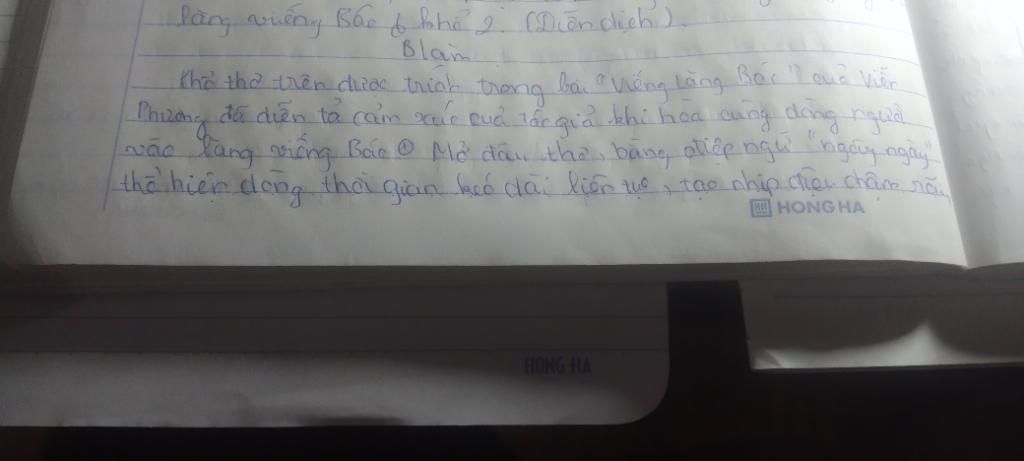 lăng viếng Bác ở khổ 2. (Diễn dịch)
Blàm
Khổ thơ trên được trích trong bài "Viếng lăng Bác" của Viễn
Phương đã diễn tả cảm xúc của tác giả khi hòa cùng dòng người
vào lăng viếng Bác ① Mở đầu thơ, bằng điệp ngữ "ngày ngày"
thể hiện dòng thời gian kéo dài liên tục, tạo nhịp điệu chậm rãi,
HONG HA
HONG HA